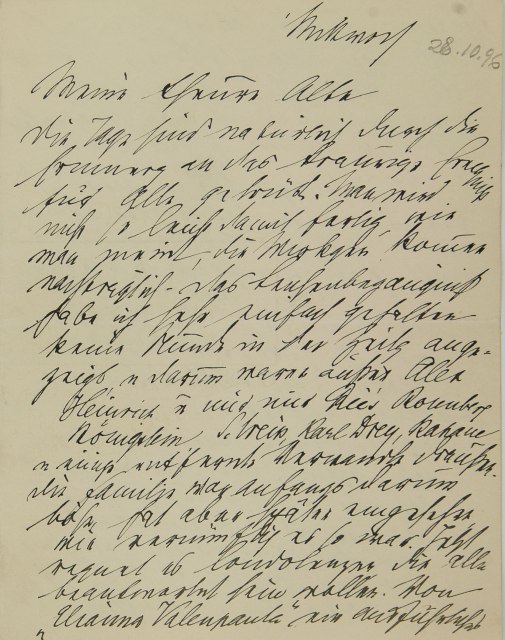 Mittwoch
28.10.96
Meine theure Alte
Die Tage sind natürlich durch die
Erinnerung an das traurige Ereigniß
für Alle getrübt. Man wird
nicht so leicht damit fertig, wie
man meint, die Wirkungen kommen
nachträglich. Das Leichenbegängniß
habe ich sehr einfach gehalten
keine Stunde in der Zeitg ange-
zeigt, u darum waren außer Alex
Heinrich u mir nur Rosenberg
Königstein Streit, Karl Drey, Kahane
u einige entfernte Verwandte draußen.
Die Familie war anfangs darum
böse, hat aber später eingesehen
wie vernünftig es so war. Jetzt
regnet es Condolenzen die alle
beantwortet sein wollen. Von
ein ausführlicher